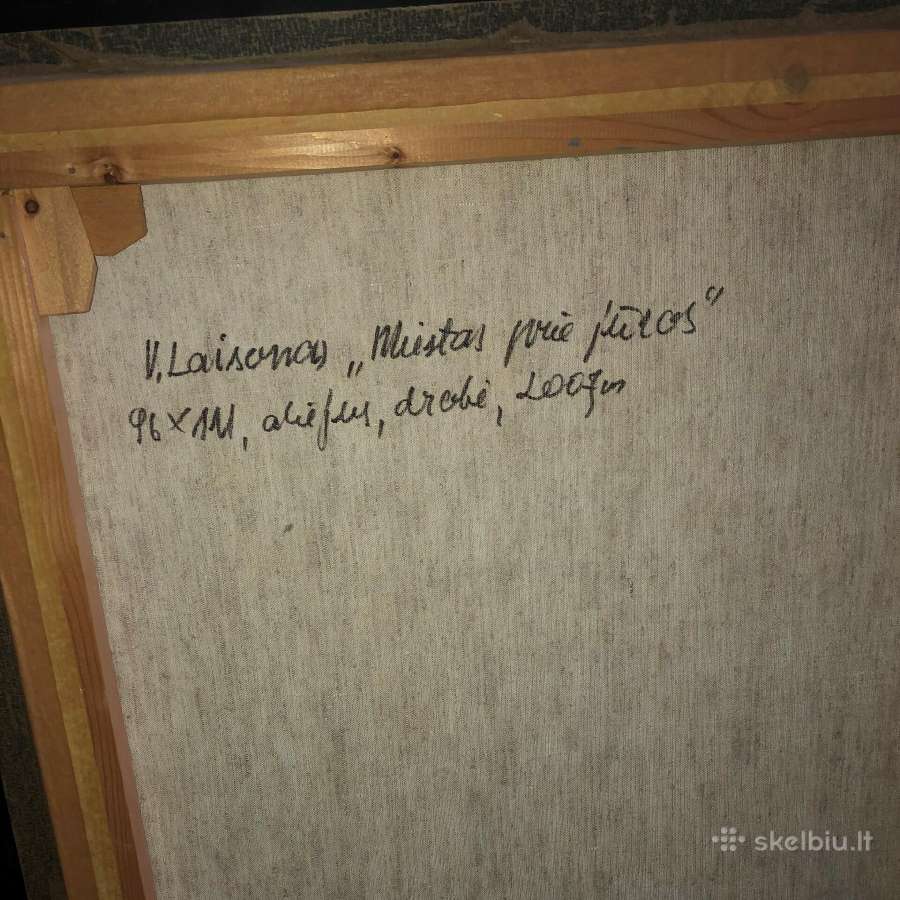 V. Laisonas „Miestas prie jūros“
96×111, aliejus, drobė, 2007m
skelbiu.lt